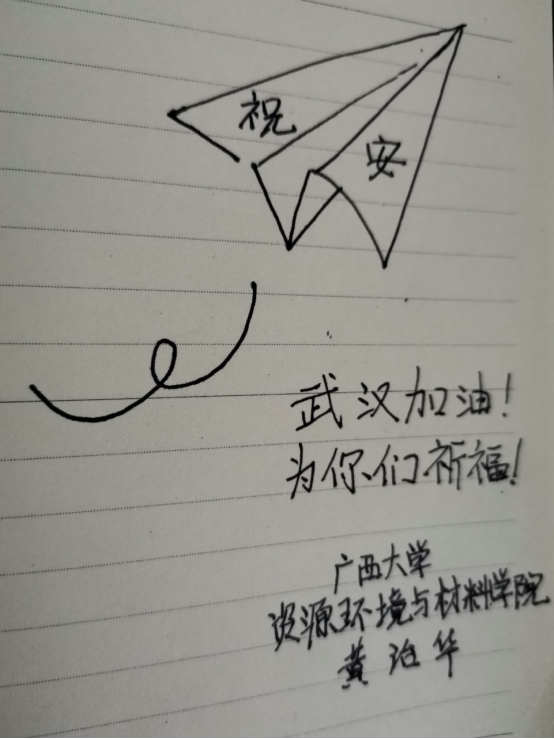 祝
安
武汉加油!
为你们祈福!
广西大学
资源环境与材料学院
黄治华